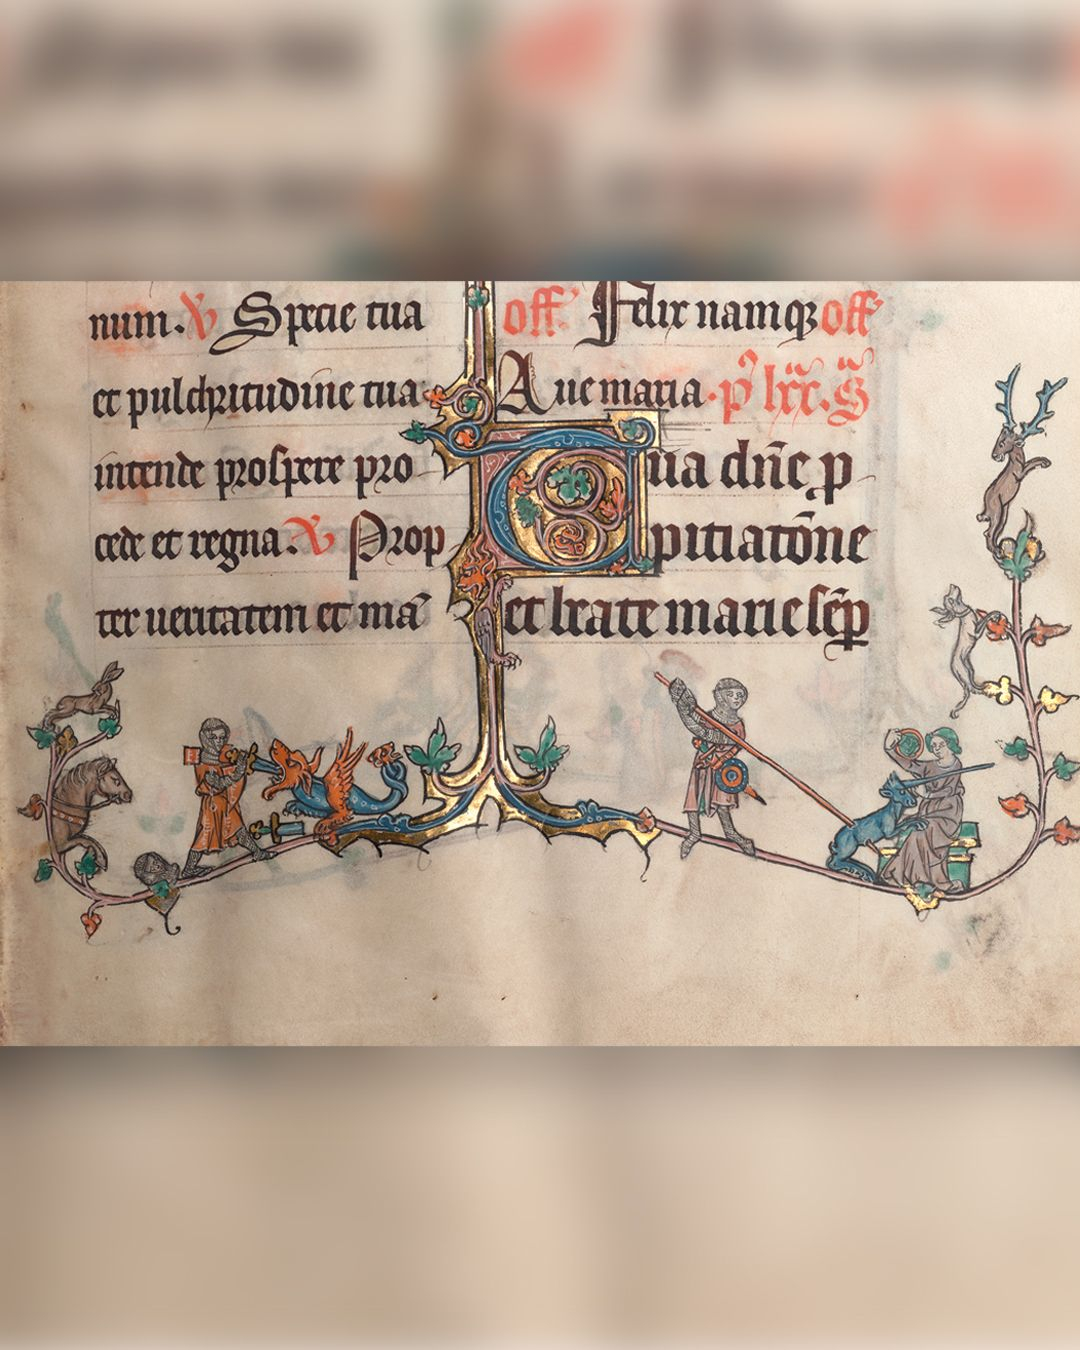 num. V Specie tua
et pulchritudine tua
intende prospere pro
cede et regna. V Prop
ter ueritatem et ma
off Felix namq off
Aue maria. p lxx. S
Tua dne p
pitiatōne
et beate marie semp